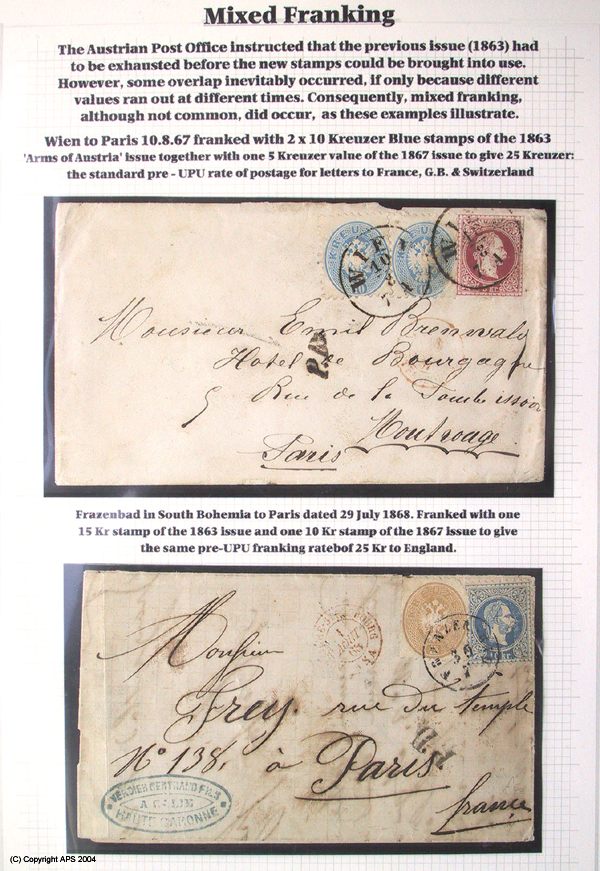 Mixed Franking
The Austrian Post Office instructed that the previous issue (1863) had
to be exhausted before the new stamps could be brought into use.
However, some overlap inevitably occurred, if only because different
values ran out at different times. Consequently, mixed franking,
although not common, did occur, as these examples illustrate.
Wien to Paris 10.8.67 franked with 2 x 10 Kreuzer Blue stamps of the 1863
'Arms of Austria' issue together with one 5 Kreuzer value of the 1867 issue to give 25 Kreuzer:
the standard pre - UPU rate of postage for letters to France, G.B. & Switzerland
KREUZER
WIEN
Monsieur Emil Brenwald
Hotel de Bourgogne
P.D.
5 Rue de la
Montrouge
Paris
Frazenbad in South Bohemia to Paris dated 29 July 1868. Franked with one
15 Kr stamp of the 1863 issue and one 10 Kr stamp of the 1867 issue to give
the same pre-UPU franking ratebof 25 Kr to England.
Monsieur
Frey. rue du temple
P.D.
No 138, à Paris
france
(C) Copyright APS 2004